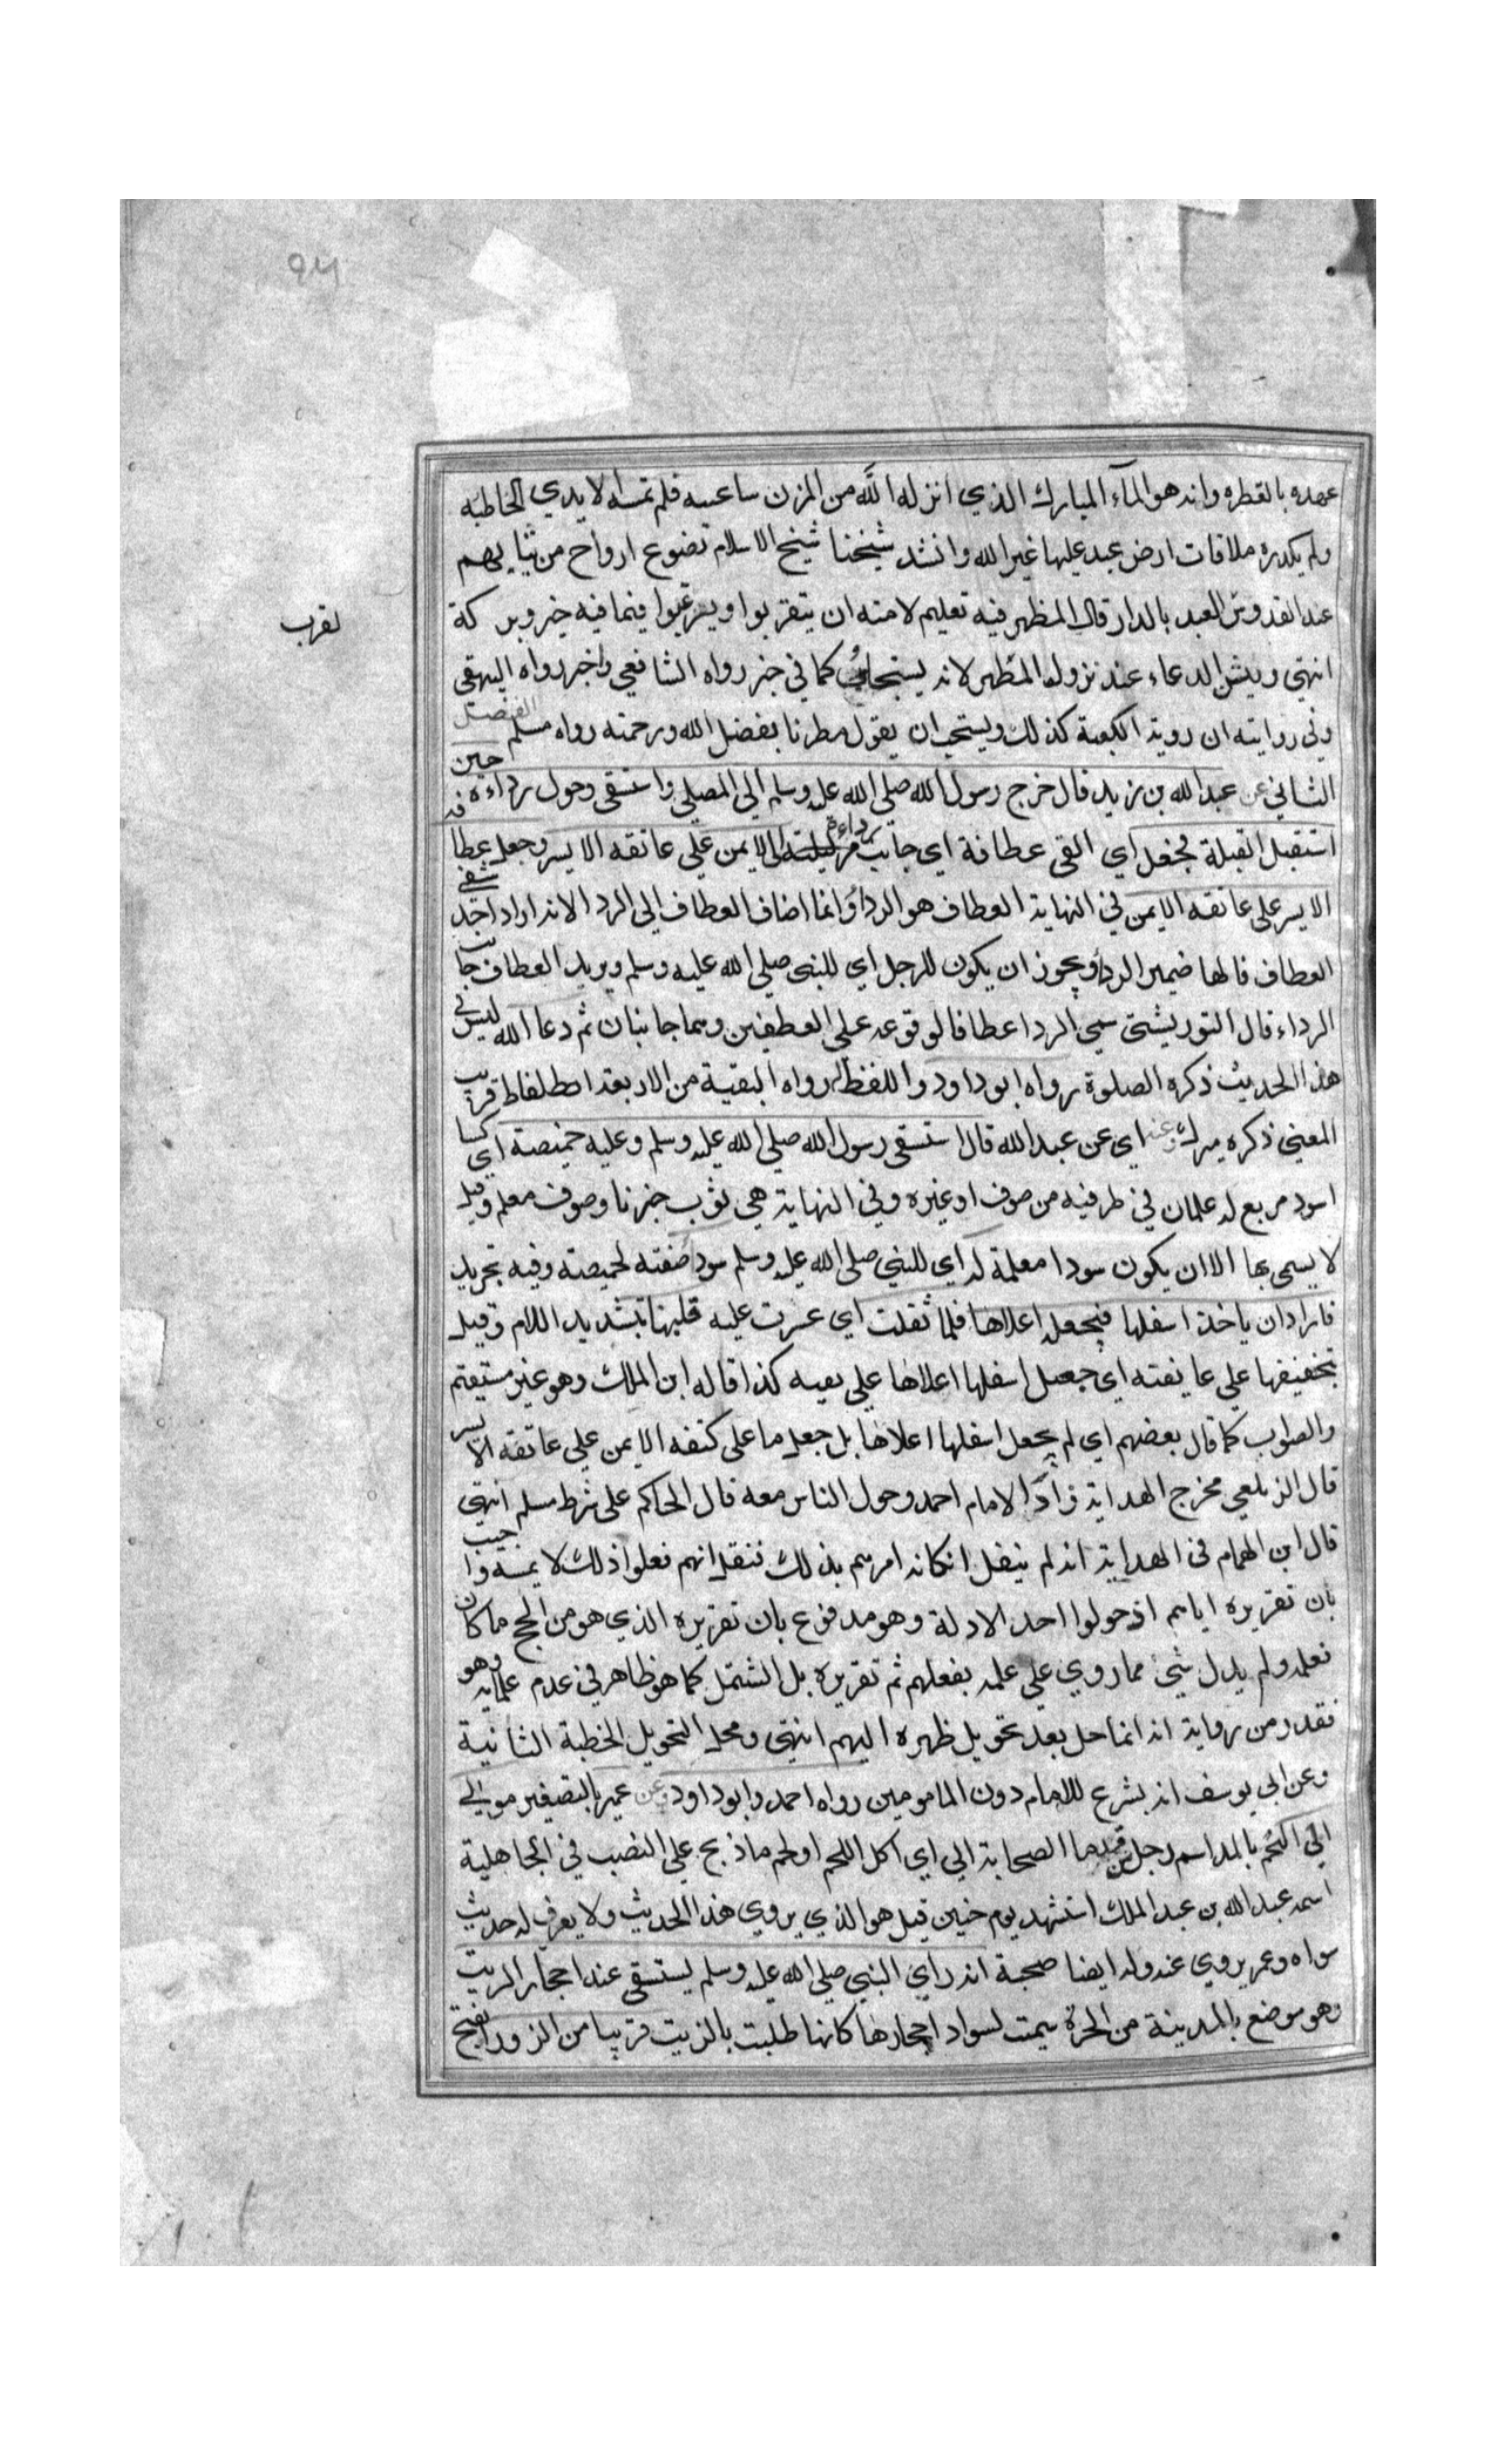 عهده بالفطره وانه هو المآء المبارك الذي انزله الله من المزن ساعته فلم تمسه الايدي الخاطبه
ولم يكدره ملاقات ارض عبد عليها غير الله وانشد شيخنا شيخ الاسلام تضوع ارواح من ثيابهم
عند القدوم العهد بالدار قال المظهر فيه تعليم لامته ان يتقربوا ويرغبوا فيما فيه خير وبركة
لقرب
انتهى ويسن الدعاء عند نزول المطهر لانه يستجاب كما في خبر رواه الشافعي واخر رواه البيهقي
وفي روايته ان روية الكعبة كذلك ويستحب ان يقول مطرنا بفضل الله ورحمته رواه مسلم الفصل
الثاني عن عبد الله بن زيد قال خرج رسول الله صلى الله عليه وسلم الى المصلي واستسقى وحول رداءه حين
استقبل القبلة فجعل اي القى عطافة اي جانب رداءة الايمن علي عاتقه الايسر وجعل عطا
الايسر على عاتقه الايمن في النهاية العطاف هو الرداؤ وانما اضاف العطاف الى الردا لانه اراد احد شقي
العطاف فالها ضمير الرداؤ ويجوز ان يكون للرجل اي للنبي صلى الله عليه وسلم ويريد العطاف جانب
الرداء قال التوربشتي سمي الردا عطافا لوقوعه على العطفين وهما جانبان ثم دعا الله ليس في
هذا الحديث ذكره الصلوة رواه ابو داود واللفظ له رواه البقية من الاربعة قريب
المعنى ذكره ميرك وعنه اي عن عبد الله قال استسقى رسول الله صلى الله عليه وسلم وعليه خميصة اي كسا
اسود مربع له علمان في طرفيه من صوف او غيره وفي النهاية هي ثوب خز نا وصوف معلم وقيل
لا يسمى بها الا ان يكون سودا معلمة له اي للنبي صلى الله عليه وسلم سودا صفته لخميصة وفيه تجريد
فاراد ان ياخذ اسفلها فيجعل اعلاها فلما ثقلت اي عسرت عليه قلبها بتشديد اللام وقيل
بتخفيفها علي عاتقته اي جعل اسفلها اعلاها علي كذا قاله ابن الملك وهو غير مستيقم
والصواب كما قال بعضهم اي لم يجعل اسفلها اعلاها بل جعل ما على كتفه الايمن علي عاتقه الايسر
قال الزيلعي مخرج الهداية زاد الامام احمد وحول الناس معه قال الحاكم على شرط مسلم انتهى
قال ابن الهمام في الهداية انه لم ينقل انه امرهم بذلك فنقل انهم فعلوا ذلك لا يمسه واجيب
بان تقريره اياهم اذ حولوا احد الادلة وهو مدفوع بان تقريره الذي هو من الحج ما كان
نعلمه ولم يدل شيء مما روي علي علمه بفعلهم ثم تقريره بل اشتمل كما هو ظاهر في عدم علمه به وهو
فقد ومن رواية انه انما حل بعد تحويل ظهره اليهم انتهى ومحل التحويل الخطبة الثانية
وعن ابي يوسف انه يشرع للامام دون المامومين رواه احمد وابو داود وعن عمير بالتصغير مولى
ابي اللحم بالمد اسم رجل من قدما الصحابة ابي اي اكل اللحم او لحم ما ذبح علي النصب في الجاهلية
اسمه عبد الله بن عبد الملك استشهد يوم حنين قيل هو الذي يروي هذا الحديث ولا يعرف له حديث
سواه وعمر يروي عنه وله ايضا صحبة انه راي النبي صلى الله عليه وسلم يستسقى عند احجار الزيت
وهو موضع بالمدينة من الحرة سميت لسواد احجارها كانها طلبت بالزيت قريبا من الزورا بفتح